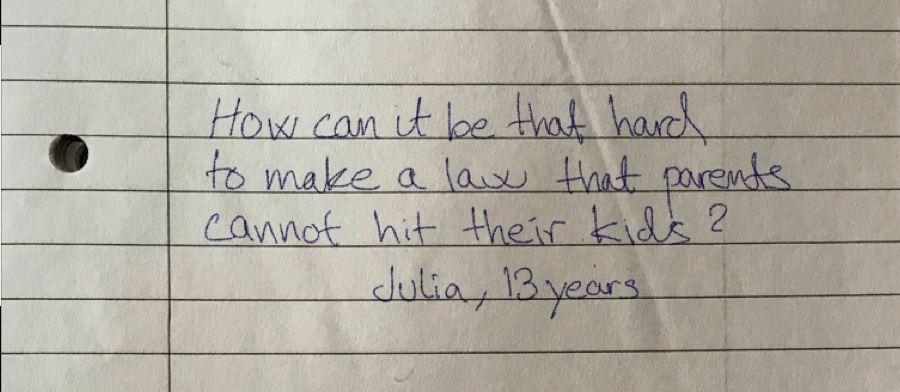 How can it be that hard
to make a law that parents
cannot hit their kids?
Julia, 13 years